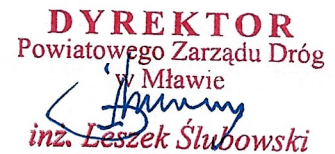 DYREKTOR
Powiatowego Zarządu Dróg
w Mławie
inż. Leszek Ślubowski